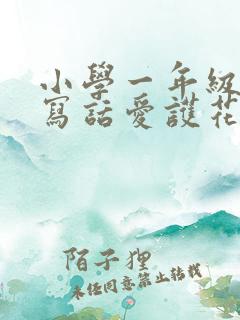 小學一年級
寫話愛護花
陌子狸
未經同意禁止轉載